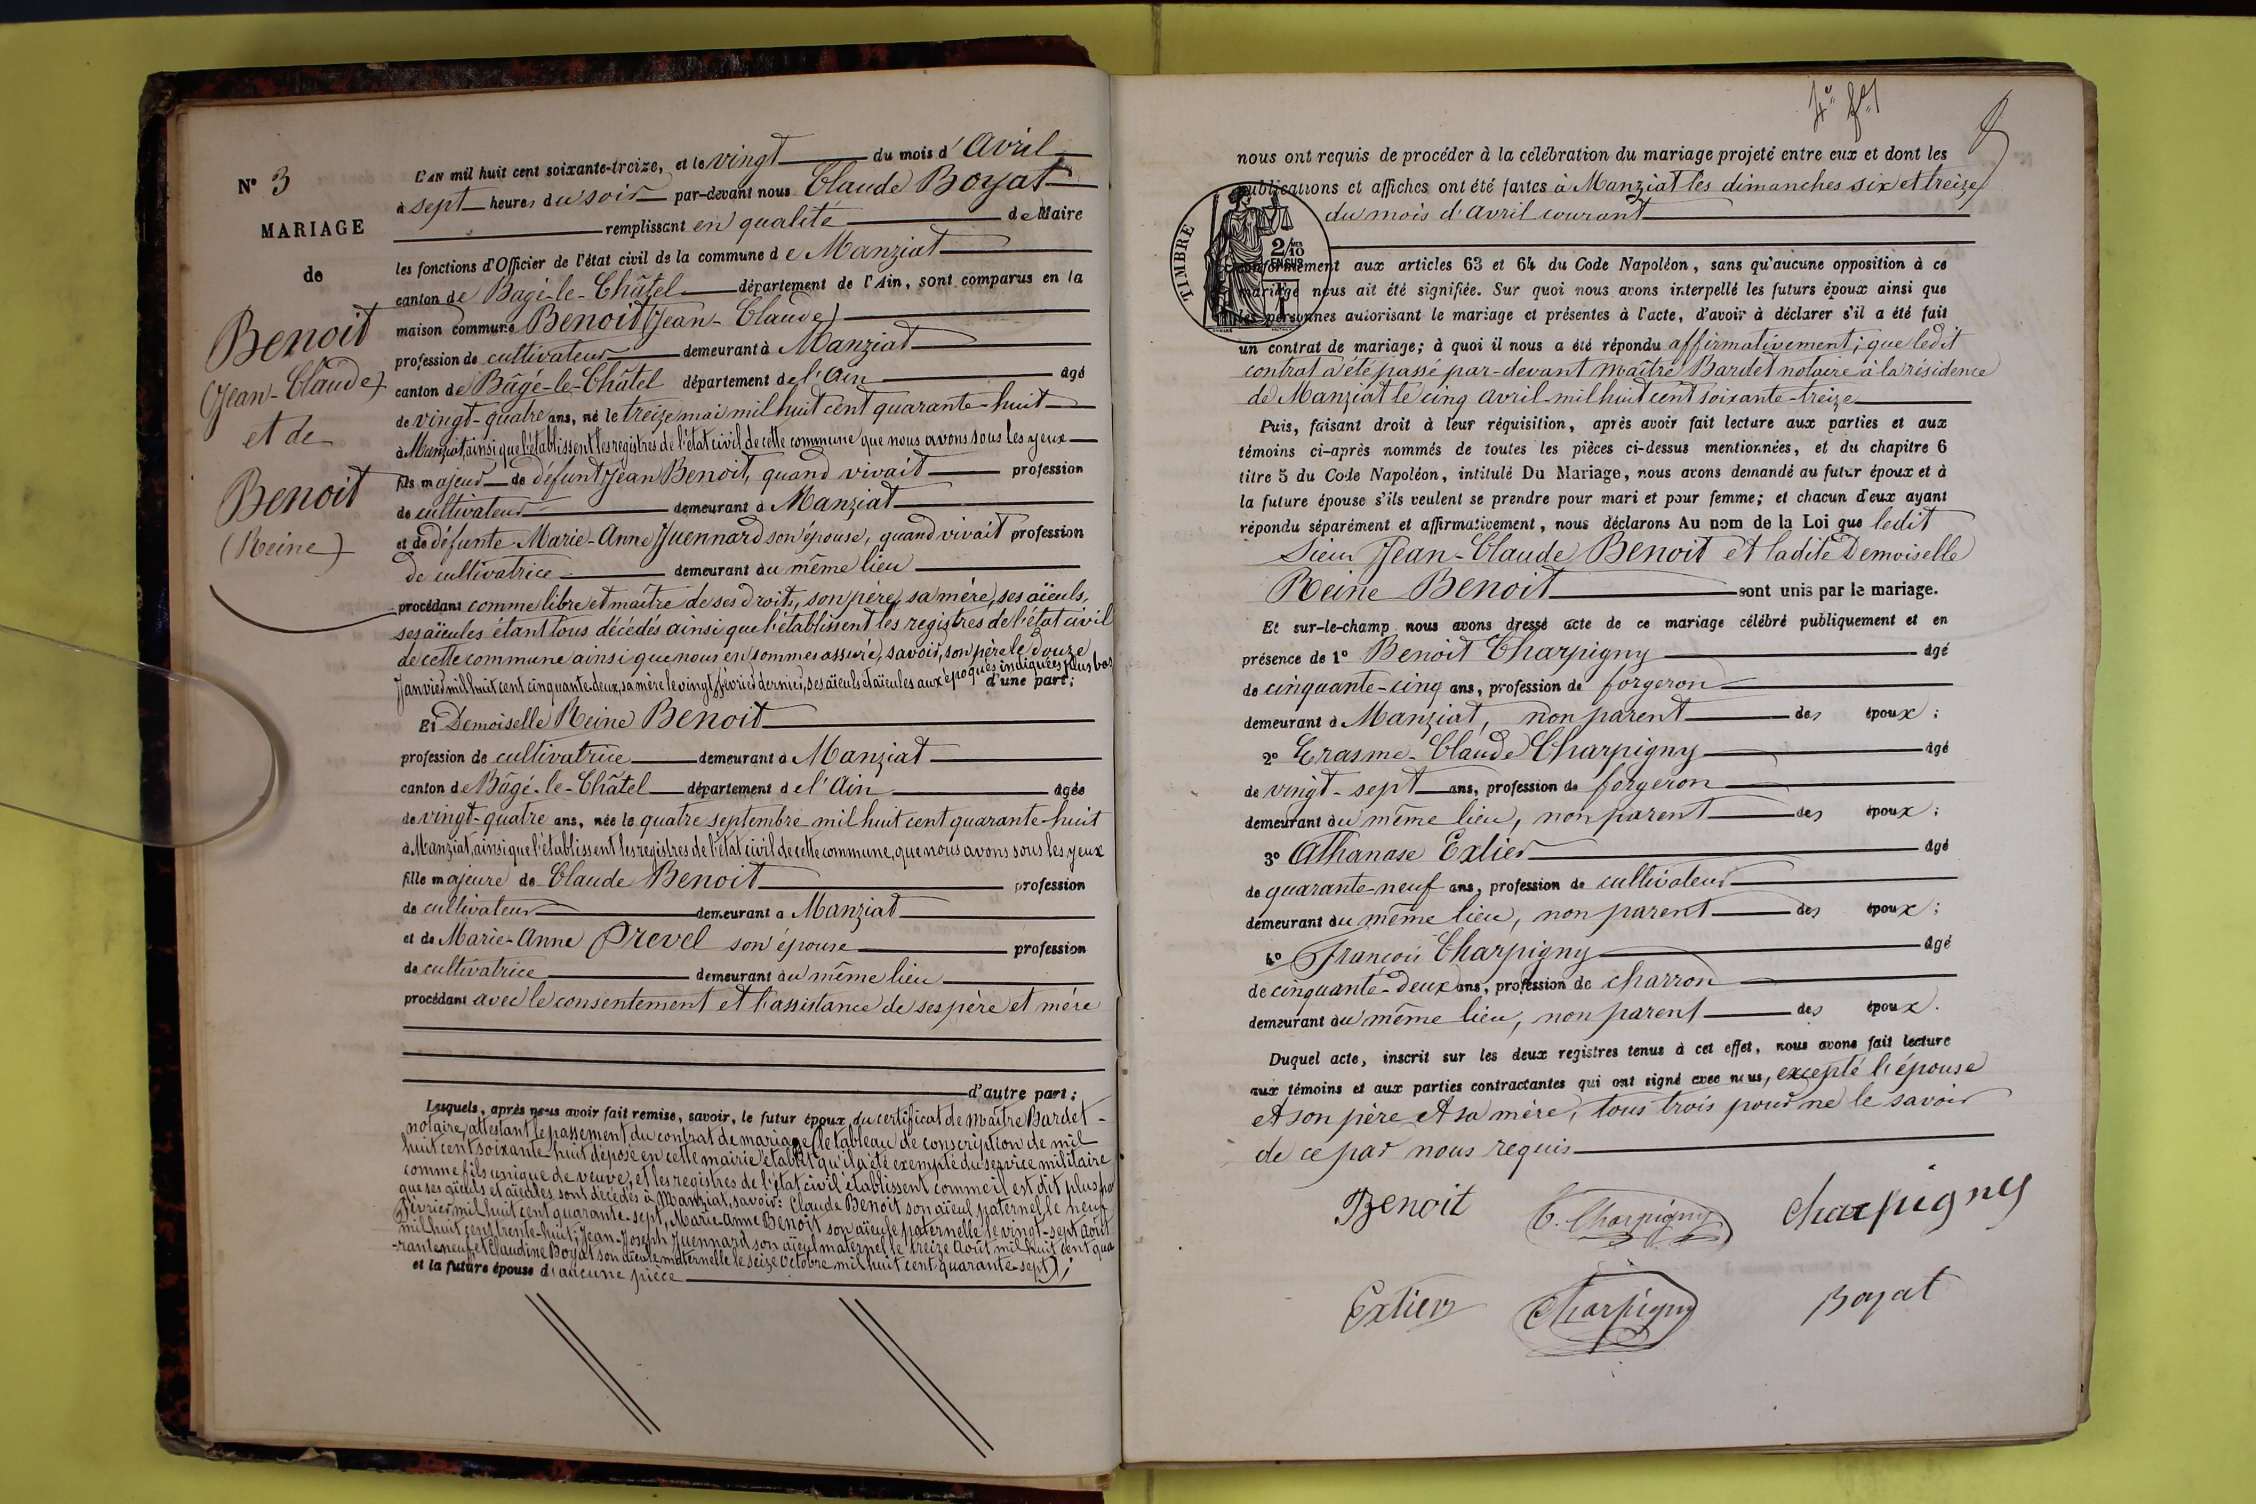 N° 3
MARIAGE
de
Benoit
(Jean-Claude)
et de
Benoit
(Reine)
L'AN mil huit cent soixante-treize, et le vingt du mois d'Avril
à sept heures du soir par-devant nous Claude Boyat
remplissant en qualité de Maire
les fonctions d'Officier de l'état civil de la commune de Manziat
canton de Bagé-le-Châtel département de l'Ain, sont comparus en la
maison commune Benoit (Jean-Claude)
profession de cultivateur demeurant à Manziat
canton de Bâgé-le-Châtel département de l'Ain âgé
de vingt-quatre ans, né le treize mai mil huit cent quarante-huit
à Manziat, ainsi que l'établissent les registres de l'état civil de cette commune que nous avons sous les yeux
fils majeur de défunt Jean Benoit, quand vivait profession
de cultivateur demeurant à Manziat
et de défunte Marie-Anne Juennard son épouse, quand vivait profession
de cultivatrice demeurant au même lieu
procédant comme libre et maître de ses droits, son père, sa mère, ses aïeuls,
ses aïeules étant tous décédés ainsi que l'établissent les registres de l'état civil
de cette commune ainsi que nous en sommes assuré, savoir, son père le douze
Janvier mil huit cent cinquante-deux, sa mère le vingt février dernier, ses aïeuls et aïeules aux époques indiquées plus bas
d'une part;
Et Demoiselle Reine Benoit
profession de cultivatrice demeurant à Manziat
canton de Bâgé-le-Châtel département de l'Ain âgée
de vingt-quatre ans, née le quatre septembre mil huit cent quarante-huit
à Manziat, ainsi que l'établissent les registres de l'état civil de cette commune, que nous avons sous les yeux
fille majeure de Claude Benoit profession
de cultivateur demeurant à Manziat
et de Marie-Anne Prevel son épouse profession
de cultivatrice demeurant au même lieu
procédant avec le consentement et l'assistance de ses père et mère
d'autre part;
Lesquels, après nous avoir fait remise, savoir, le futur époux du certificat de Maître Bardet
notaire, attestant le passement du contrat de mariage (le tableau de conscription de mil
huit cent soixante-huit déposé en cette mairie établit qu'il a été exempté du service militaire
comme fils unique de veuve, et les registres de l'état civil établissent comme il est dit plus
que ses aïeuls et aïeules sont décédés à Manziat, savoir: Claude Benoit son aïeul paternel le neuf
février mil huit cent quarante-sept, Marie-Anne Benoit son aïeule paternelle le vingt-sept Août
mil huit cent trente-huit; Jean-Joseph Juennard son aïeul maternel le treize Août mil huit cent qua
-rante neuf et Claudine Boyat son aïeule maternelle le seize Octobre mil huit cent quarante-sept);
et la future épouse d'aucune pièce
4e ft
nous ont requis de procéder à la célébration du mariage projeté entre eux et dont les
publications et affiches ont été faites à Manziat les dimanches six et treize
du mois d'Avril courant
TIMBRE
2/10
EN SUS
conformément aux articles 63 et 64 du Code Napoléon, sans qu'aucune opposition à ce
mariage nous ait été signifiée. Sur quoi nous avons interpellé les futurs époux ainsi que
les personnes autorisant le mariage et présentes à l'acte, d'avoir à déclarer s'il a été fait
un contrat de mariage; à quoi il nous a été répondu affirmativement; que ledit
contrat a été passé par-devant Maître Bardet notaire à la résidence
de Manziat le cinq avril mil huit cent soixante-treize
Puis, faisant droit à leur réquisition, après avoir fait lecture aux parties et aux
témoins ci-après nommés de toutes les pièces ci-dessus mentionnées, et du chapitre 6
titre 5 du Code Napoléon, intitulé Du Mariage, nous avons demandé au futur époux et à
la future épouse s'ils veulent se prendre pour mari et pour femme; et chacun d'eux ayant
répondu séparément et affirmativement, nous déclarons Au nom de la Loi que ledit
Sieur Jean-Claude Benoit et ladite Demoiselle
Reine Benoit sont unis par le mariage.
Et sur-le-champ nous avons dressé acte de ce mariage célébré publiquement et en
présence de 1° Benoit Charpigny âgé
de cinquante-cinq ans, profession de forgeron
demeurant à Manziat, non parent des époux;
2° Erasme-Claude Charpigny âgé
de vingt-sept ans, profession de forgeron
demeurant au même lieu, non parent des époux;
3° Athanase Extier âgé
de quarante-neuf ans, profession de cultivateur
demeurant au même lieu, non parent des époux;
4° François Charpigny âgé
de cinquante-deux ans, profession de charron
demeurant au même lieu, non parent des époux.
Duquel acte, inscrit sur les deux registres tenus à cet effet, nous avons fait lecture
aux témoins et aux parties contractantes qui ont signé avec nous, excepté l'épouse
et son père et sa mère, tous trois pour ne le savoir
de ce par nous requis
Benoit C. Charpigny charpigny
Extier Charpigny Boyat